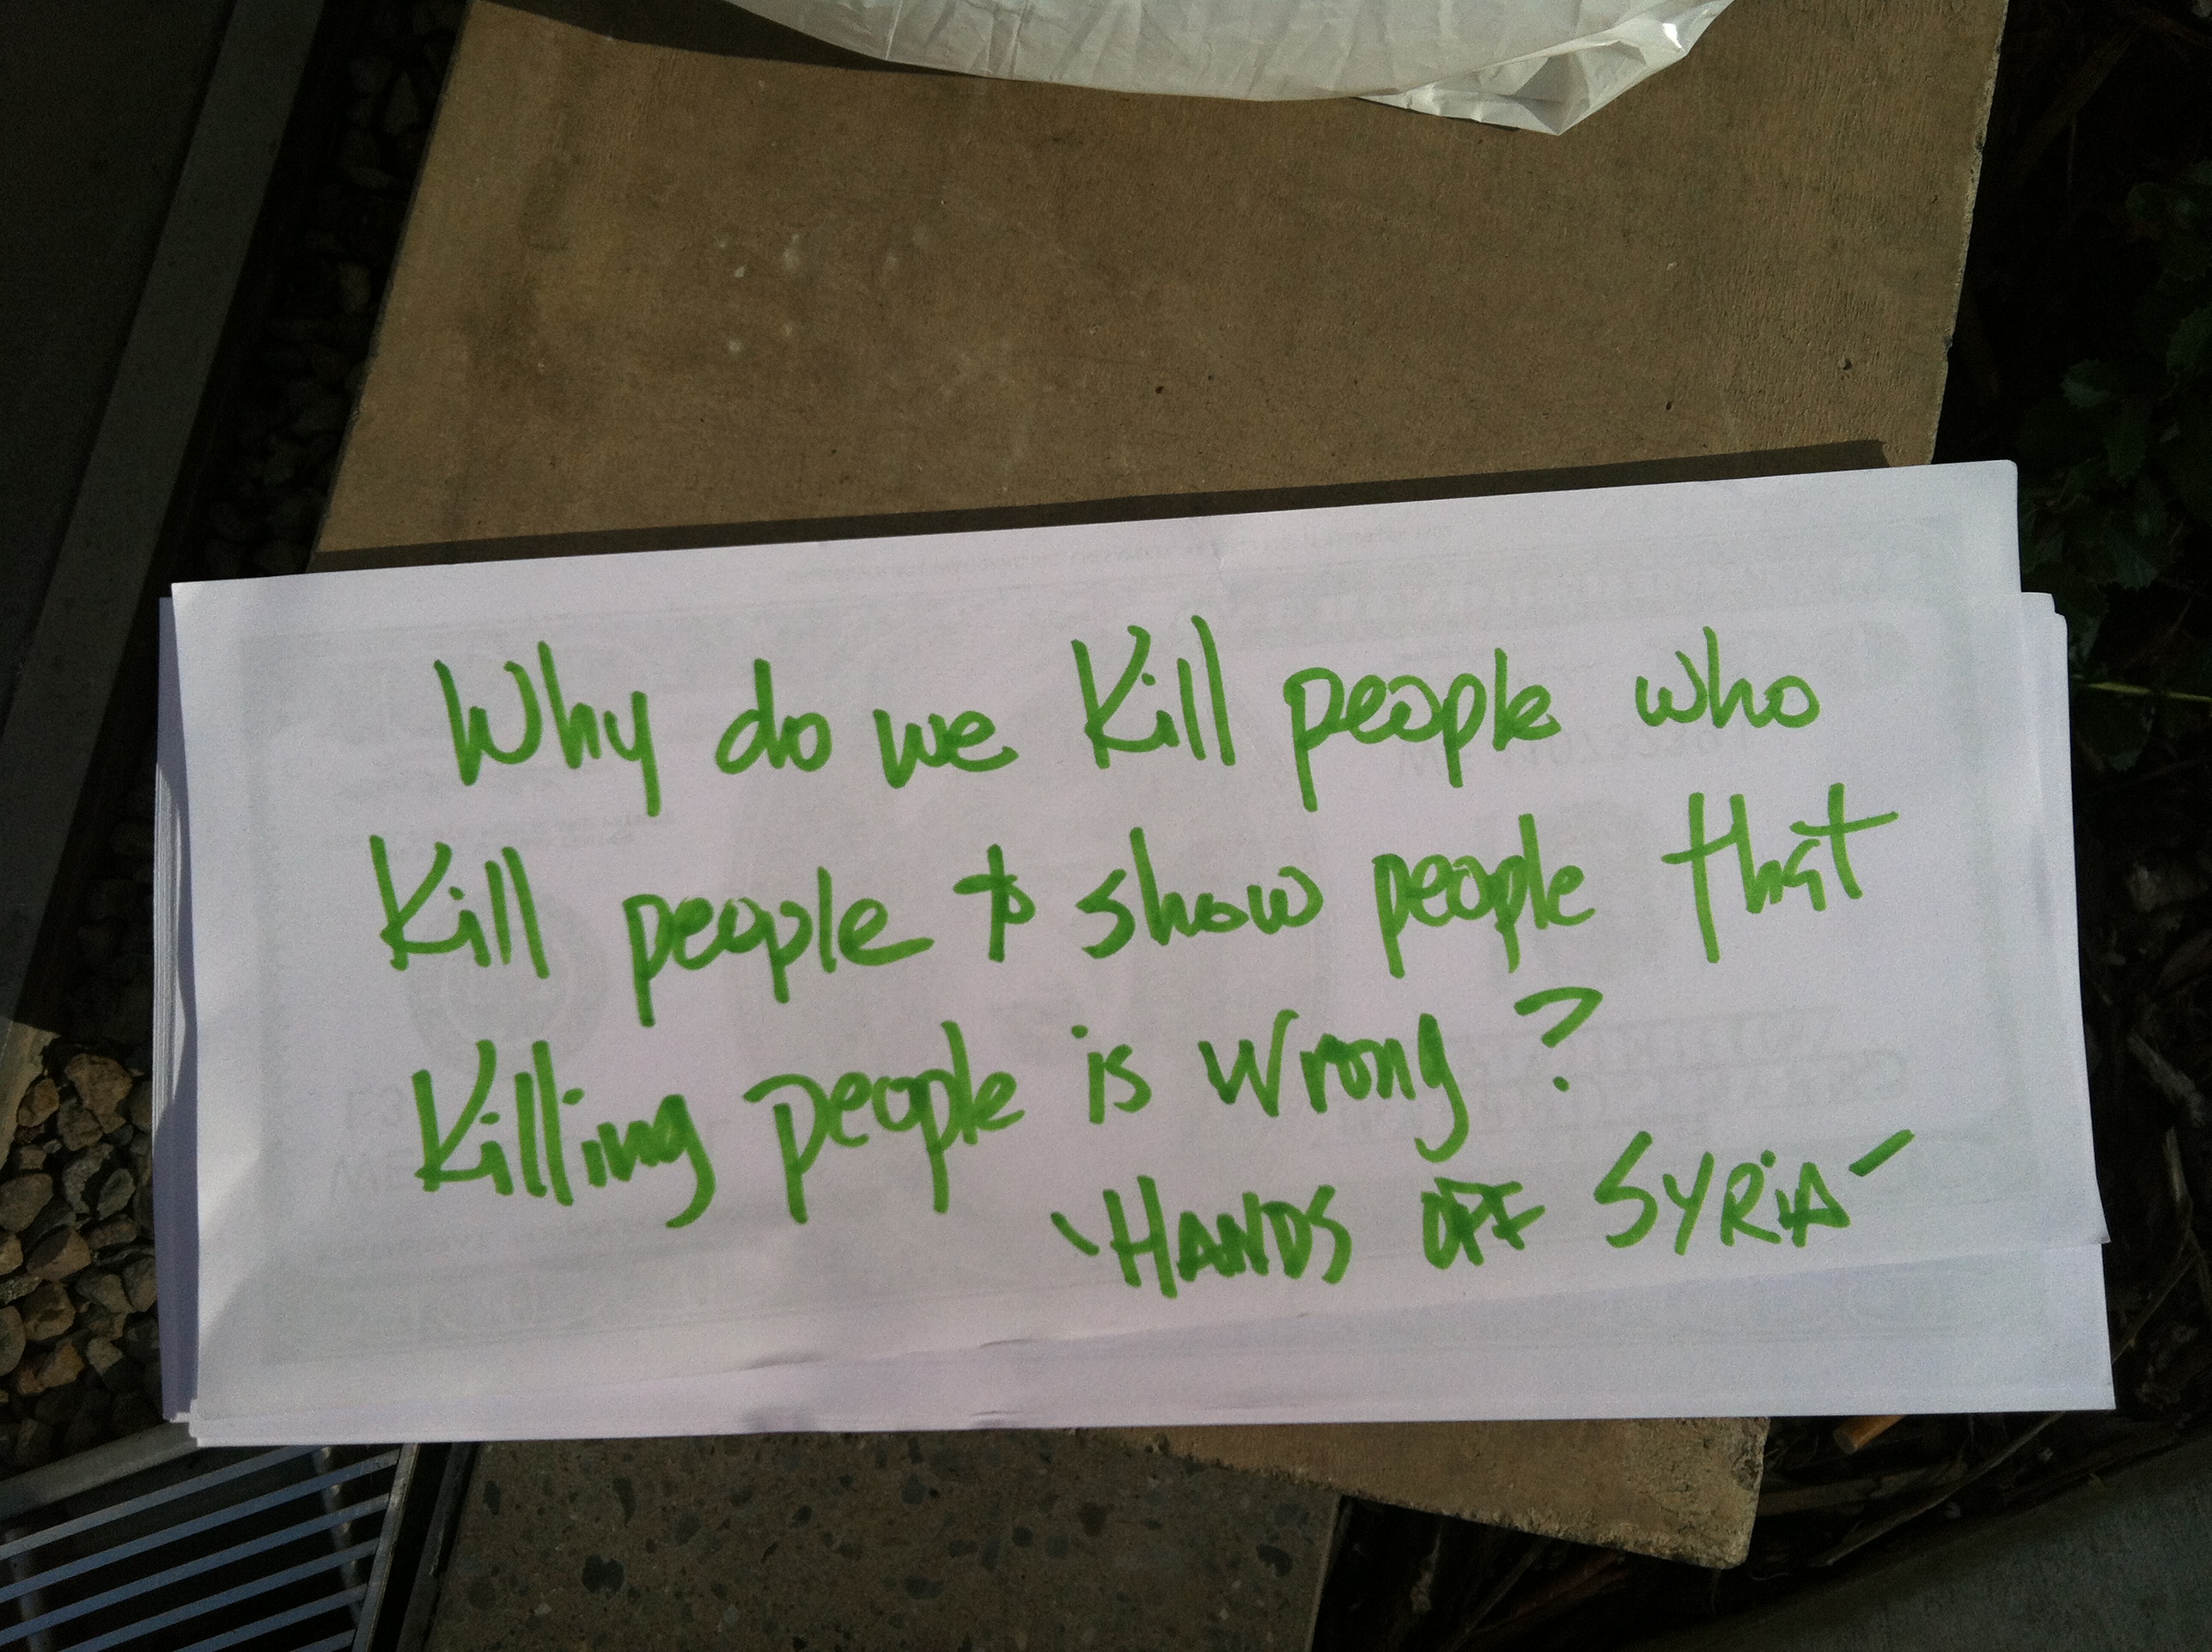 Why do we Kill people who
Kill people to show people that
Killing people is wrong?
-HANDS OFF SYRiA-